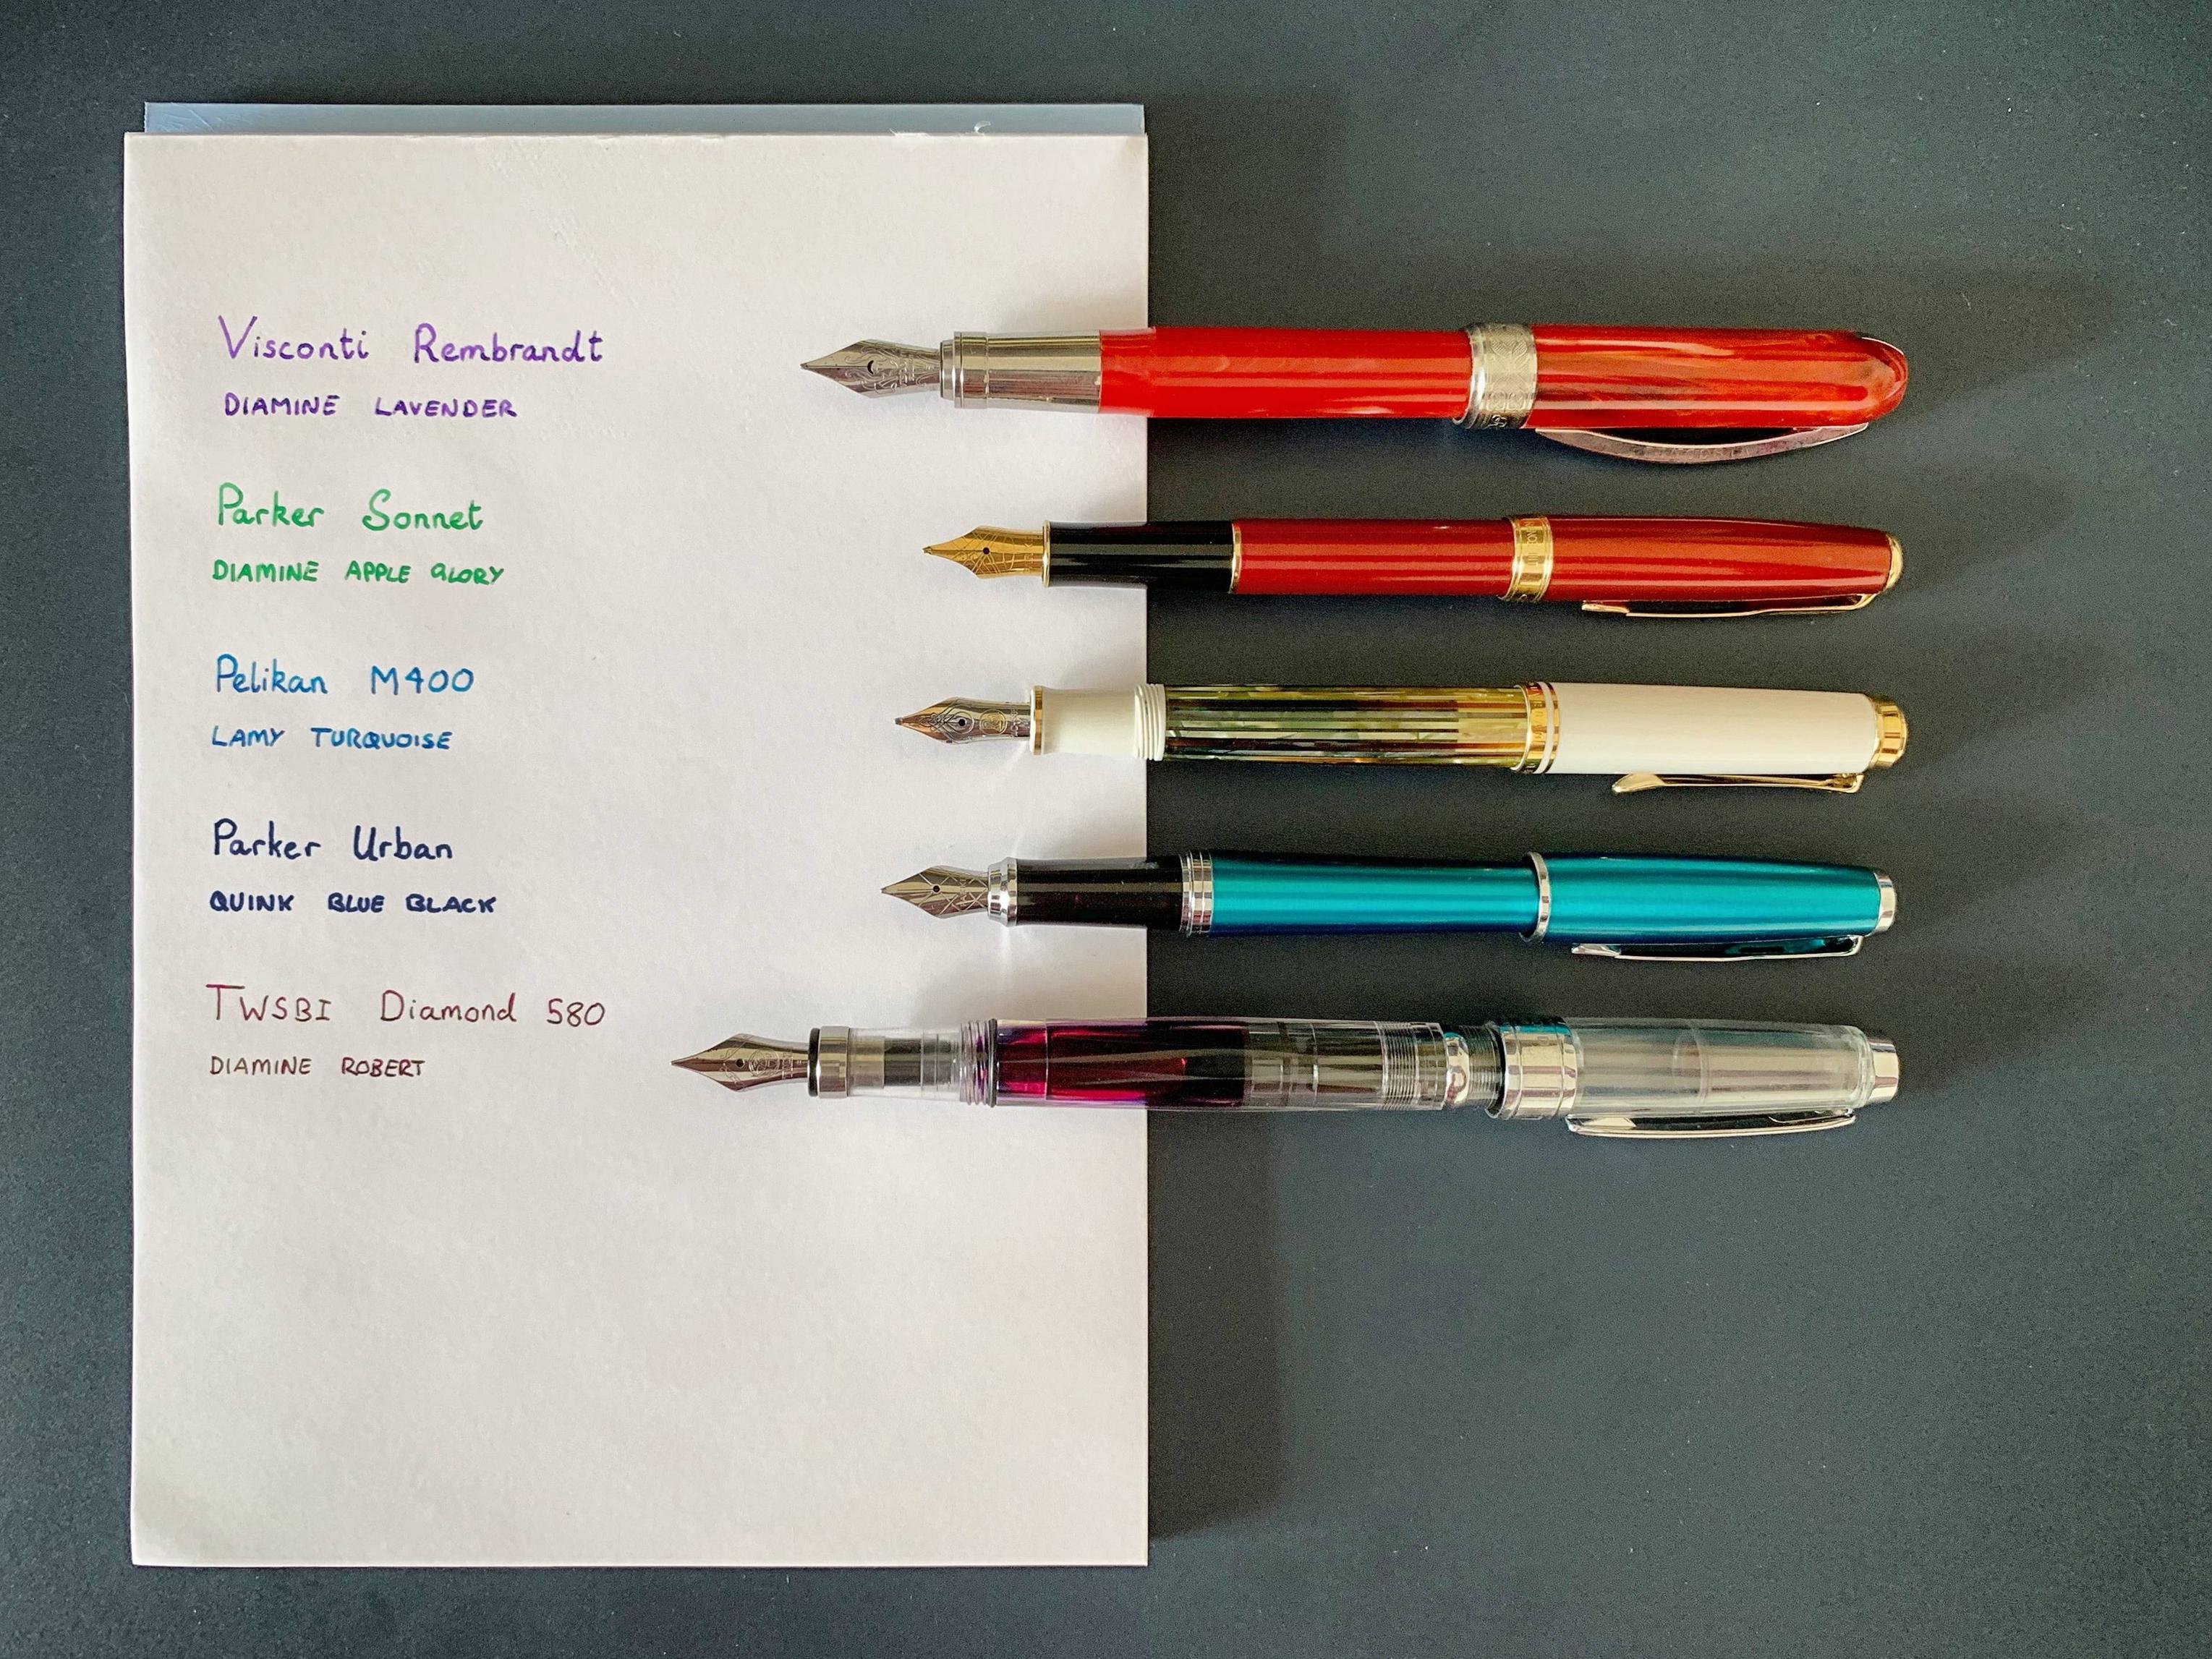 Visconti Rembrandt
DIAMINE LAVENDER
Parker Sonnet
DIAMINE APPLE GLORY
Pelikan M400
LAMY TURQUOISE
Parker Urban
QUINK BLUE BLACK
TWSBI Diamond 580
DIAMINE ROBERT